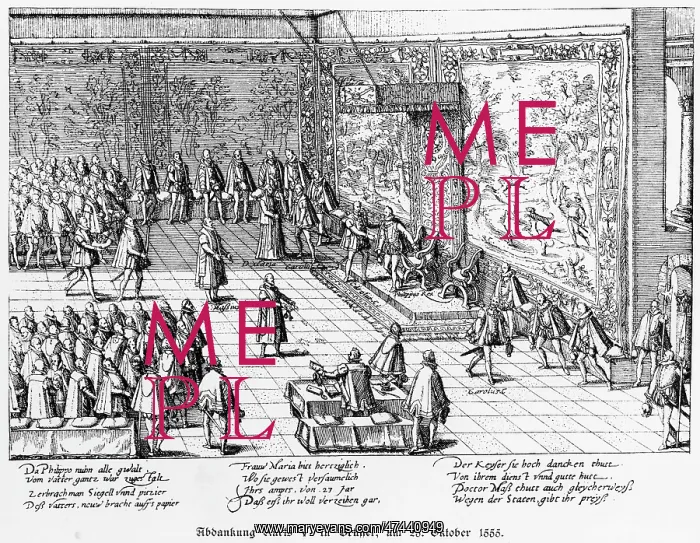 ME
PL
Philippus
Carolus
ME
PL
Da Philippo nuhn alle gwalt
Vom vatter gantz war
Zerbrach man Sigell vnnd
Deß vatters, neuw bracht auffs papier
Frauw Maria bitt hertziglich.
Wo sie gewest versaumelich
Ihrs ampts, von. 27 Jar
Daß erß ihr woll verzeihen gar.
Der Keyser sie hoch dancken thutt
Von ihrem dienst vnnd gutte hutt
Doctor Maß thutt auch gleycherweyß
Wegen der Staten, gibt ihr preyß.
Abdankung am 25. Oktober 1555.
www.maryevans.com/47440949